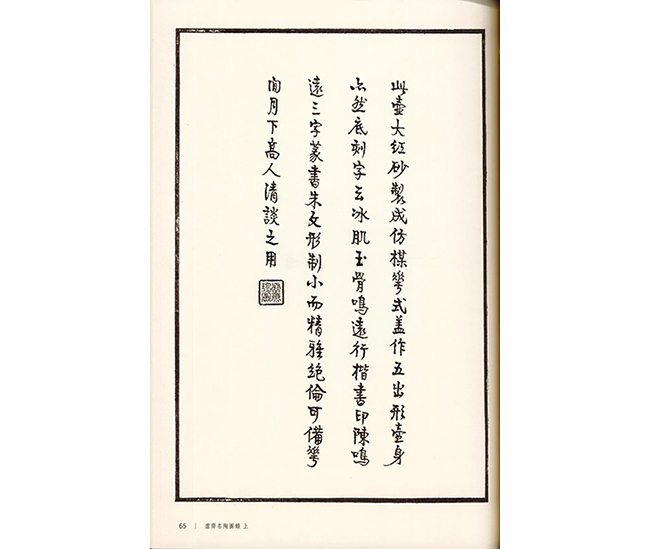 此壺大紅砂製成仿楳華式盖作五出形壺身
亦然底刻字云冰肌玉骨鳴遠行楷書印陳鳴
遠三字篆書朱文形制小而精雅絕倫可備華
間月下高人清談之用
65 | 虛齋名陶圖錄 上